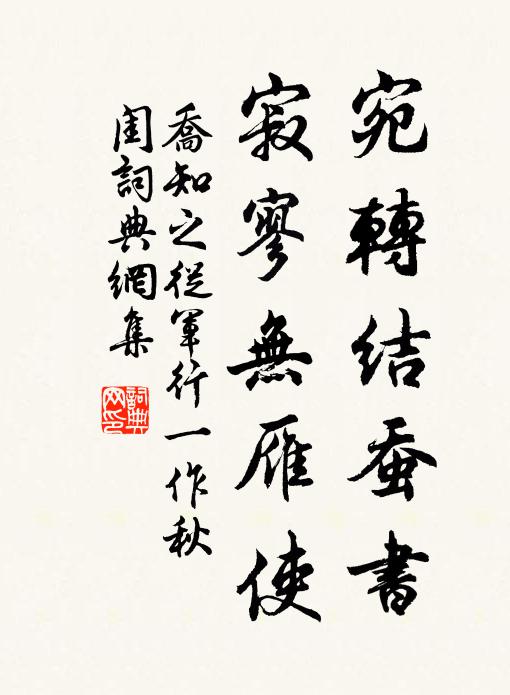 宛轉結蚕書
寂寥無雁使
喬知之從軍行一作秋
閨詞典網集
詞典网印